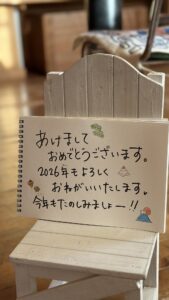 あけまして
おめでとうございます。
2026年もよろしく
おねがいいたします。
今年もたのしみましょー!!